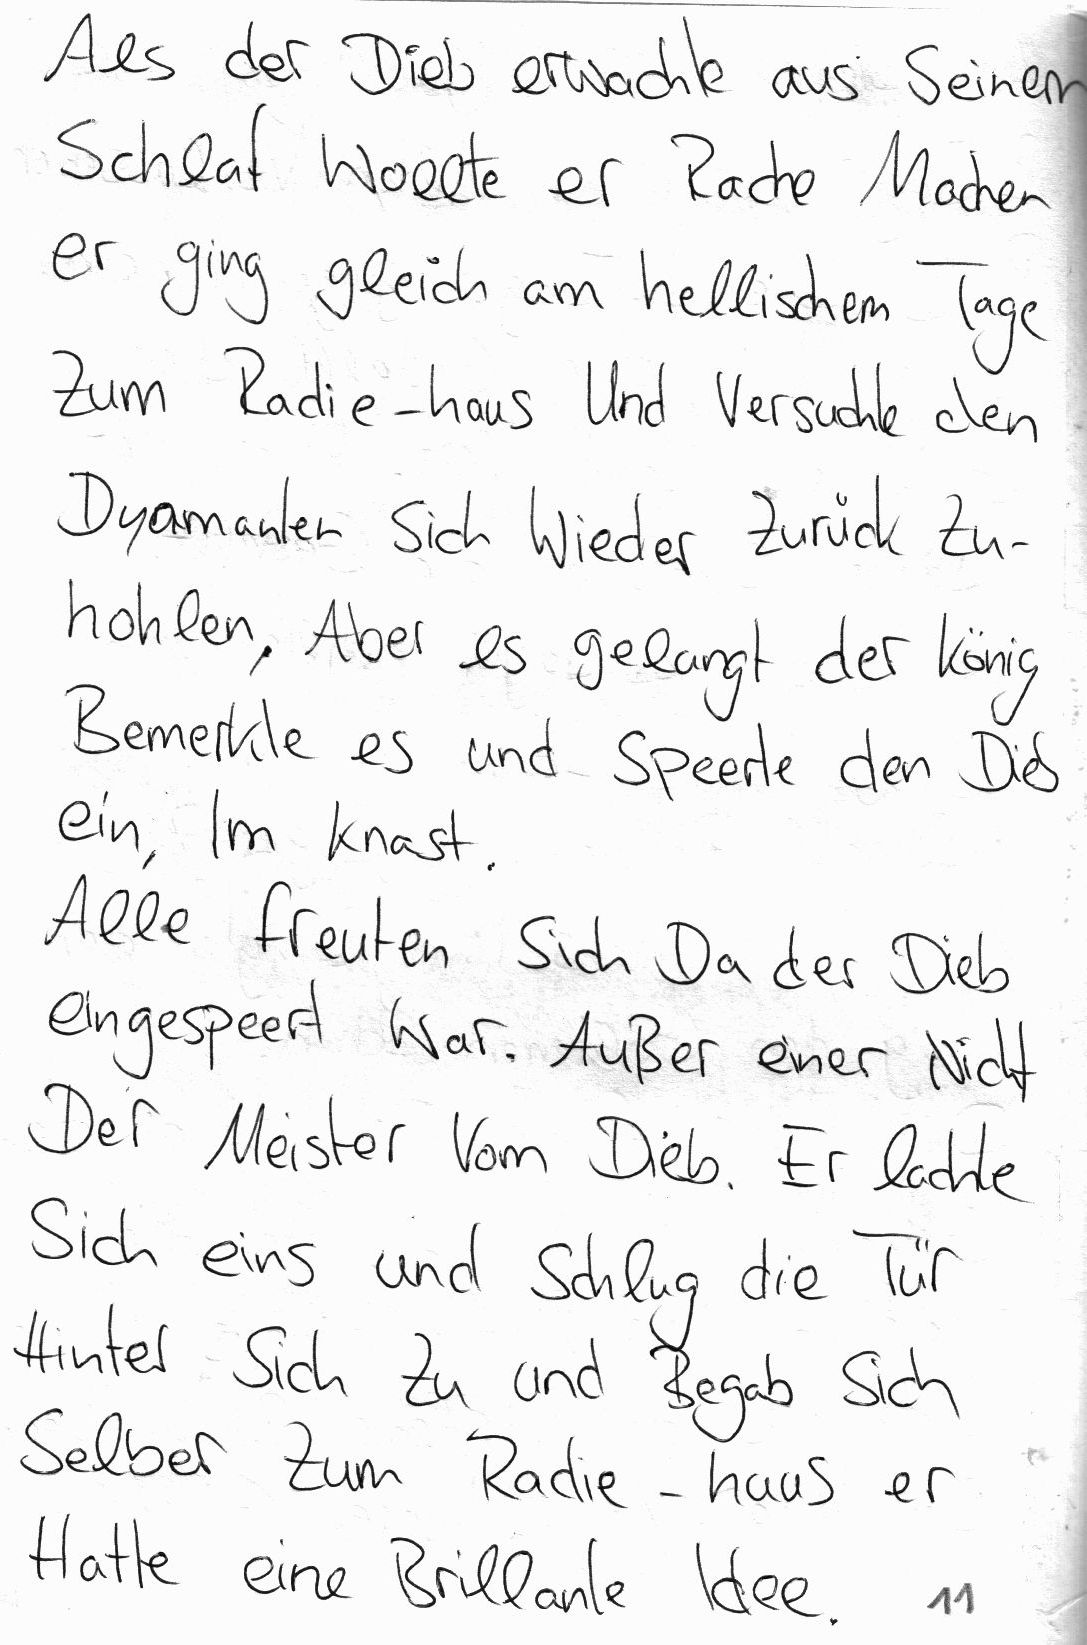 Als der Dieb erwachte aus Seinem
Schlaf Wollte er Rache Machen
er ging gleich am hellischem Tage
Zum Radie-haus Und Versuchte den
Dyamanten Sich Wieder Zurück Zu-
hohlen, Aber es gelangt der König
Bemerkte es und Speerte den Dieb
ein, Im Knast.
Alle freuten Sich Da der Dieb
eingespeert War. Außer einer Nicht
Der Meister Vom Dieb. Er lachte
Sich eins und Schlug die Tür
Hinter Sich Zu und Begab Sich
Selber Zum Radie-haus er
Hatte eine Brillante Idee.
11